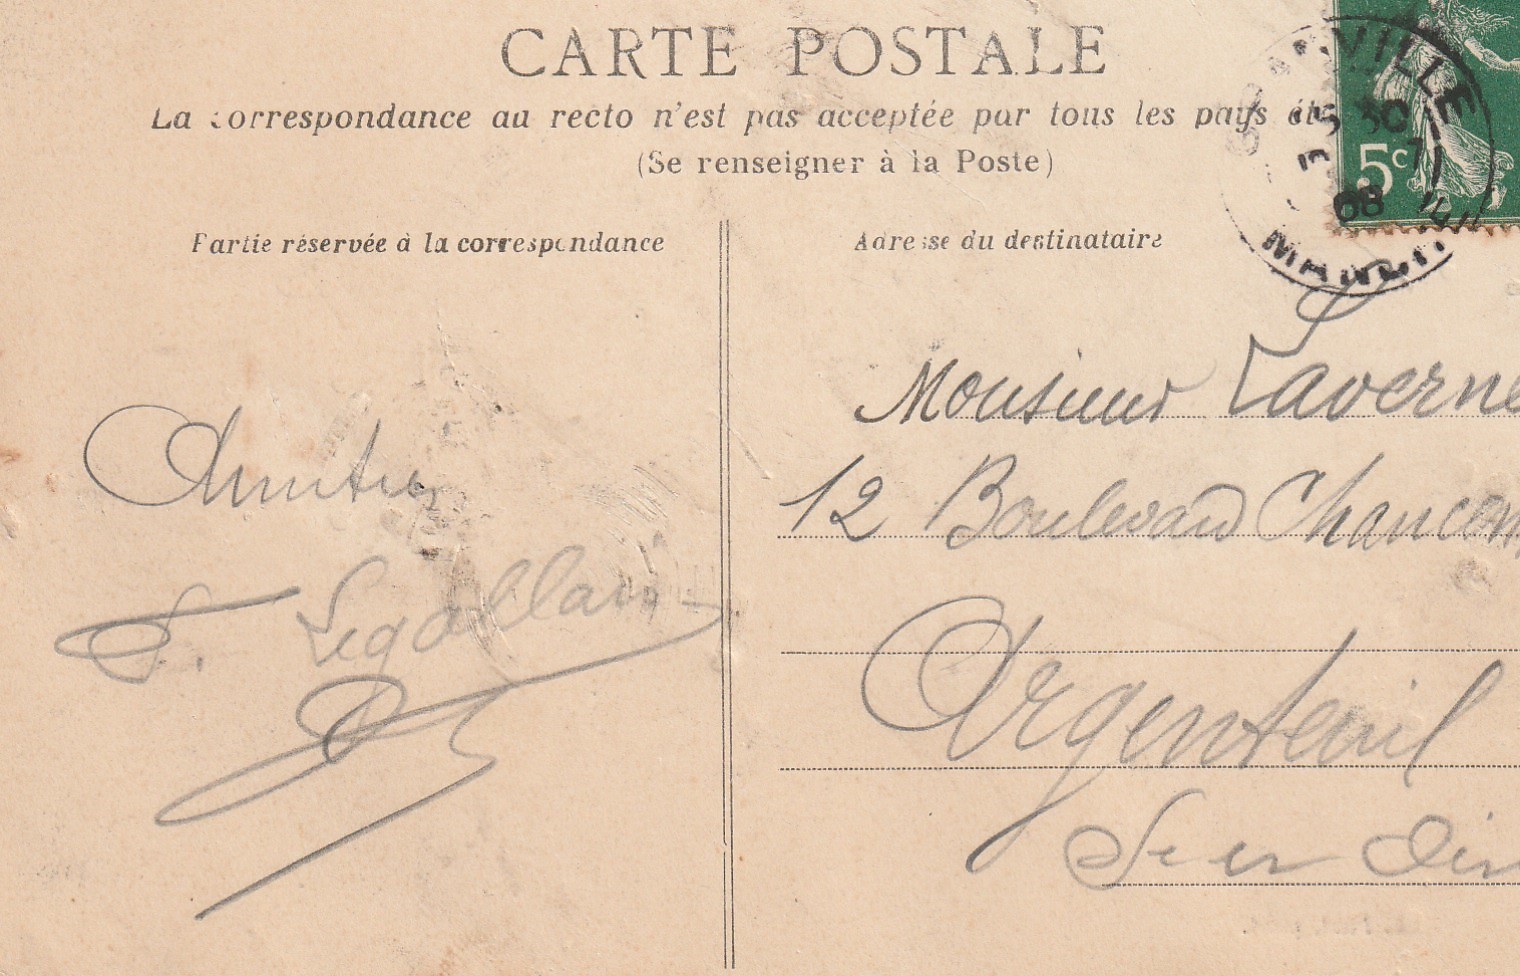 CARTE POSTALE
La correspondance au recto n'est pas acceptée par tous les pays ét
(Se renseigner à la Poste)
Partie réservée à la correspondance
Adresse du destinataire
5c
VILLE
30
7
08
Monsieur Laverne
12 Boulevard
Argenteuil
Seine
Amitiés
Legallais